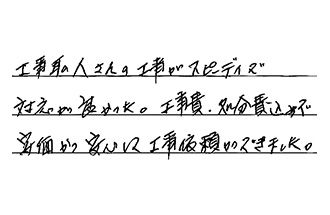 工事の人さんの工事がスピーディで
対応が良かった。工事費、処分費込みで
安価から安心して工事依頼ができました。